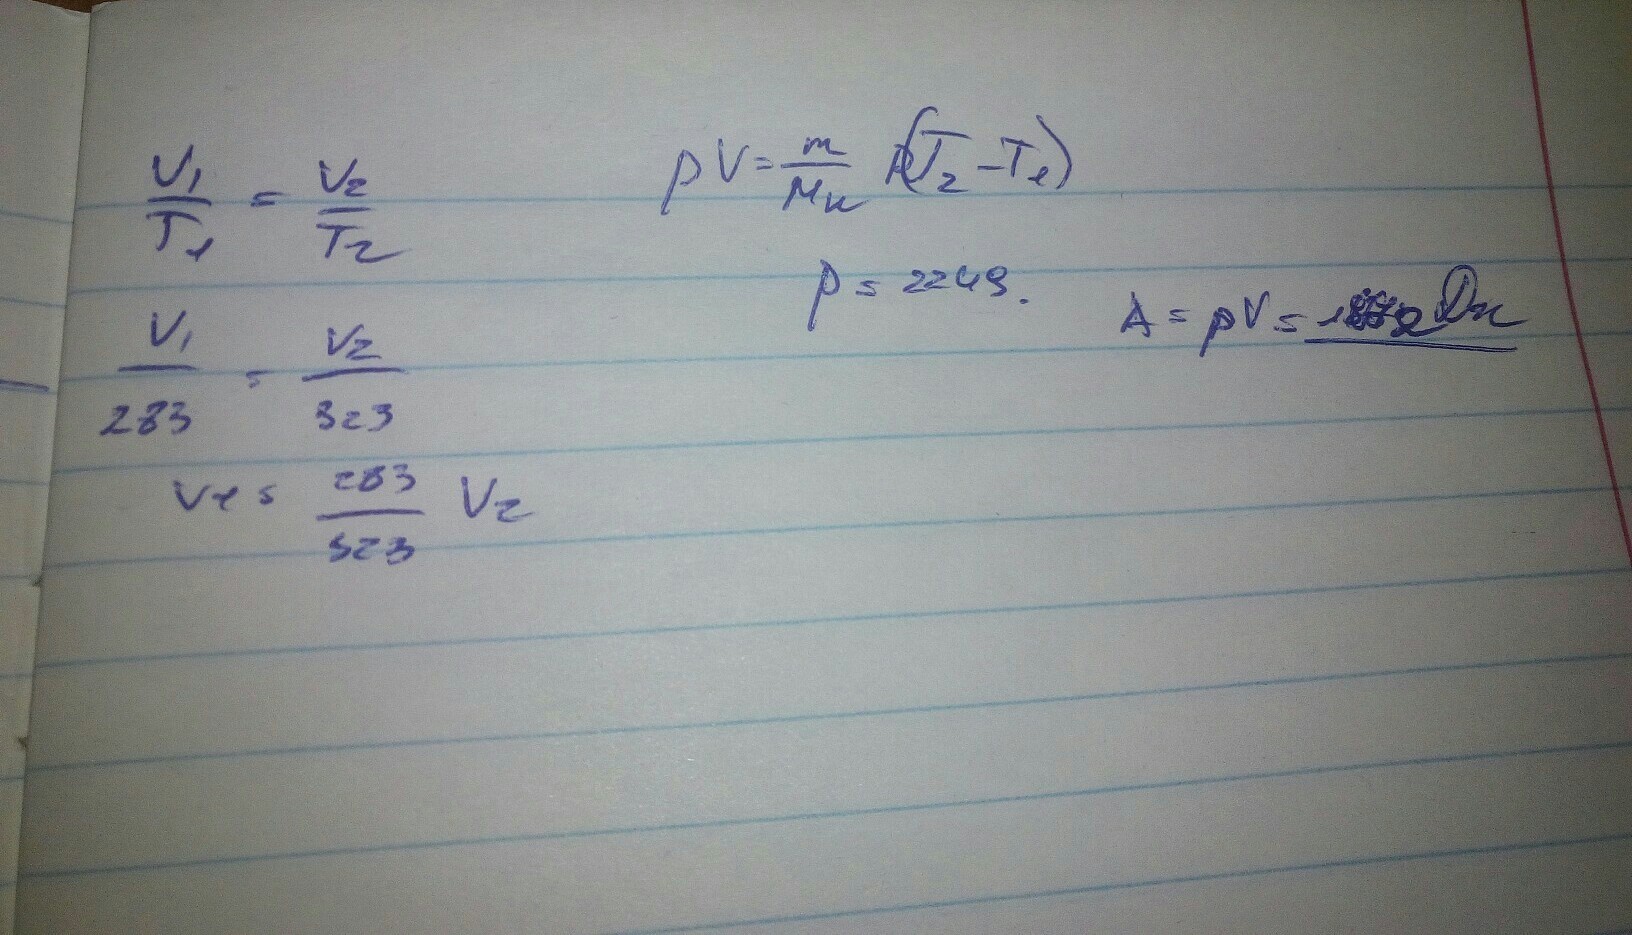 V₁/T₁ = V₂/T₂
V₁/283 = V₂/323
V₁ = 283/323 V₂
pV = m/Mк R(T₂ - T₁)
p = 2249.
A = pV = Дж